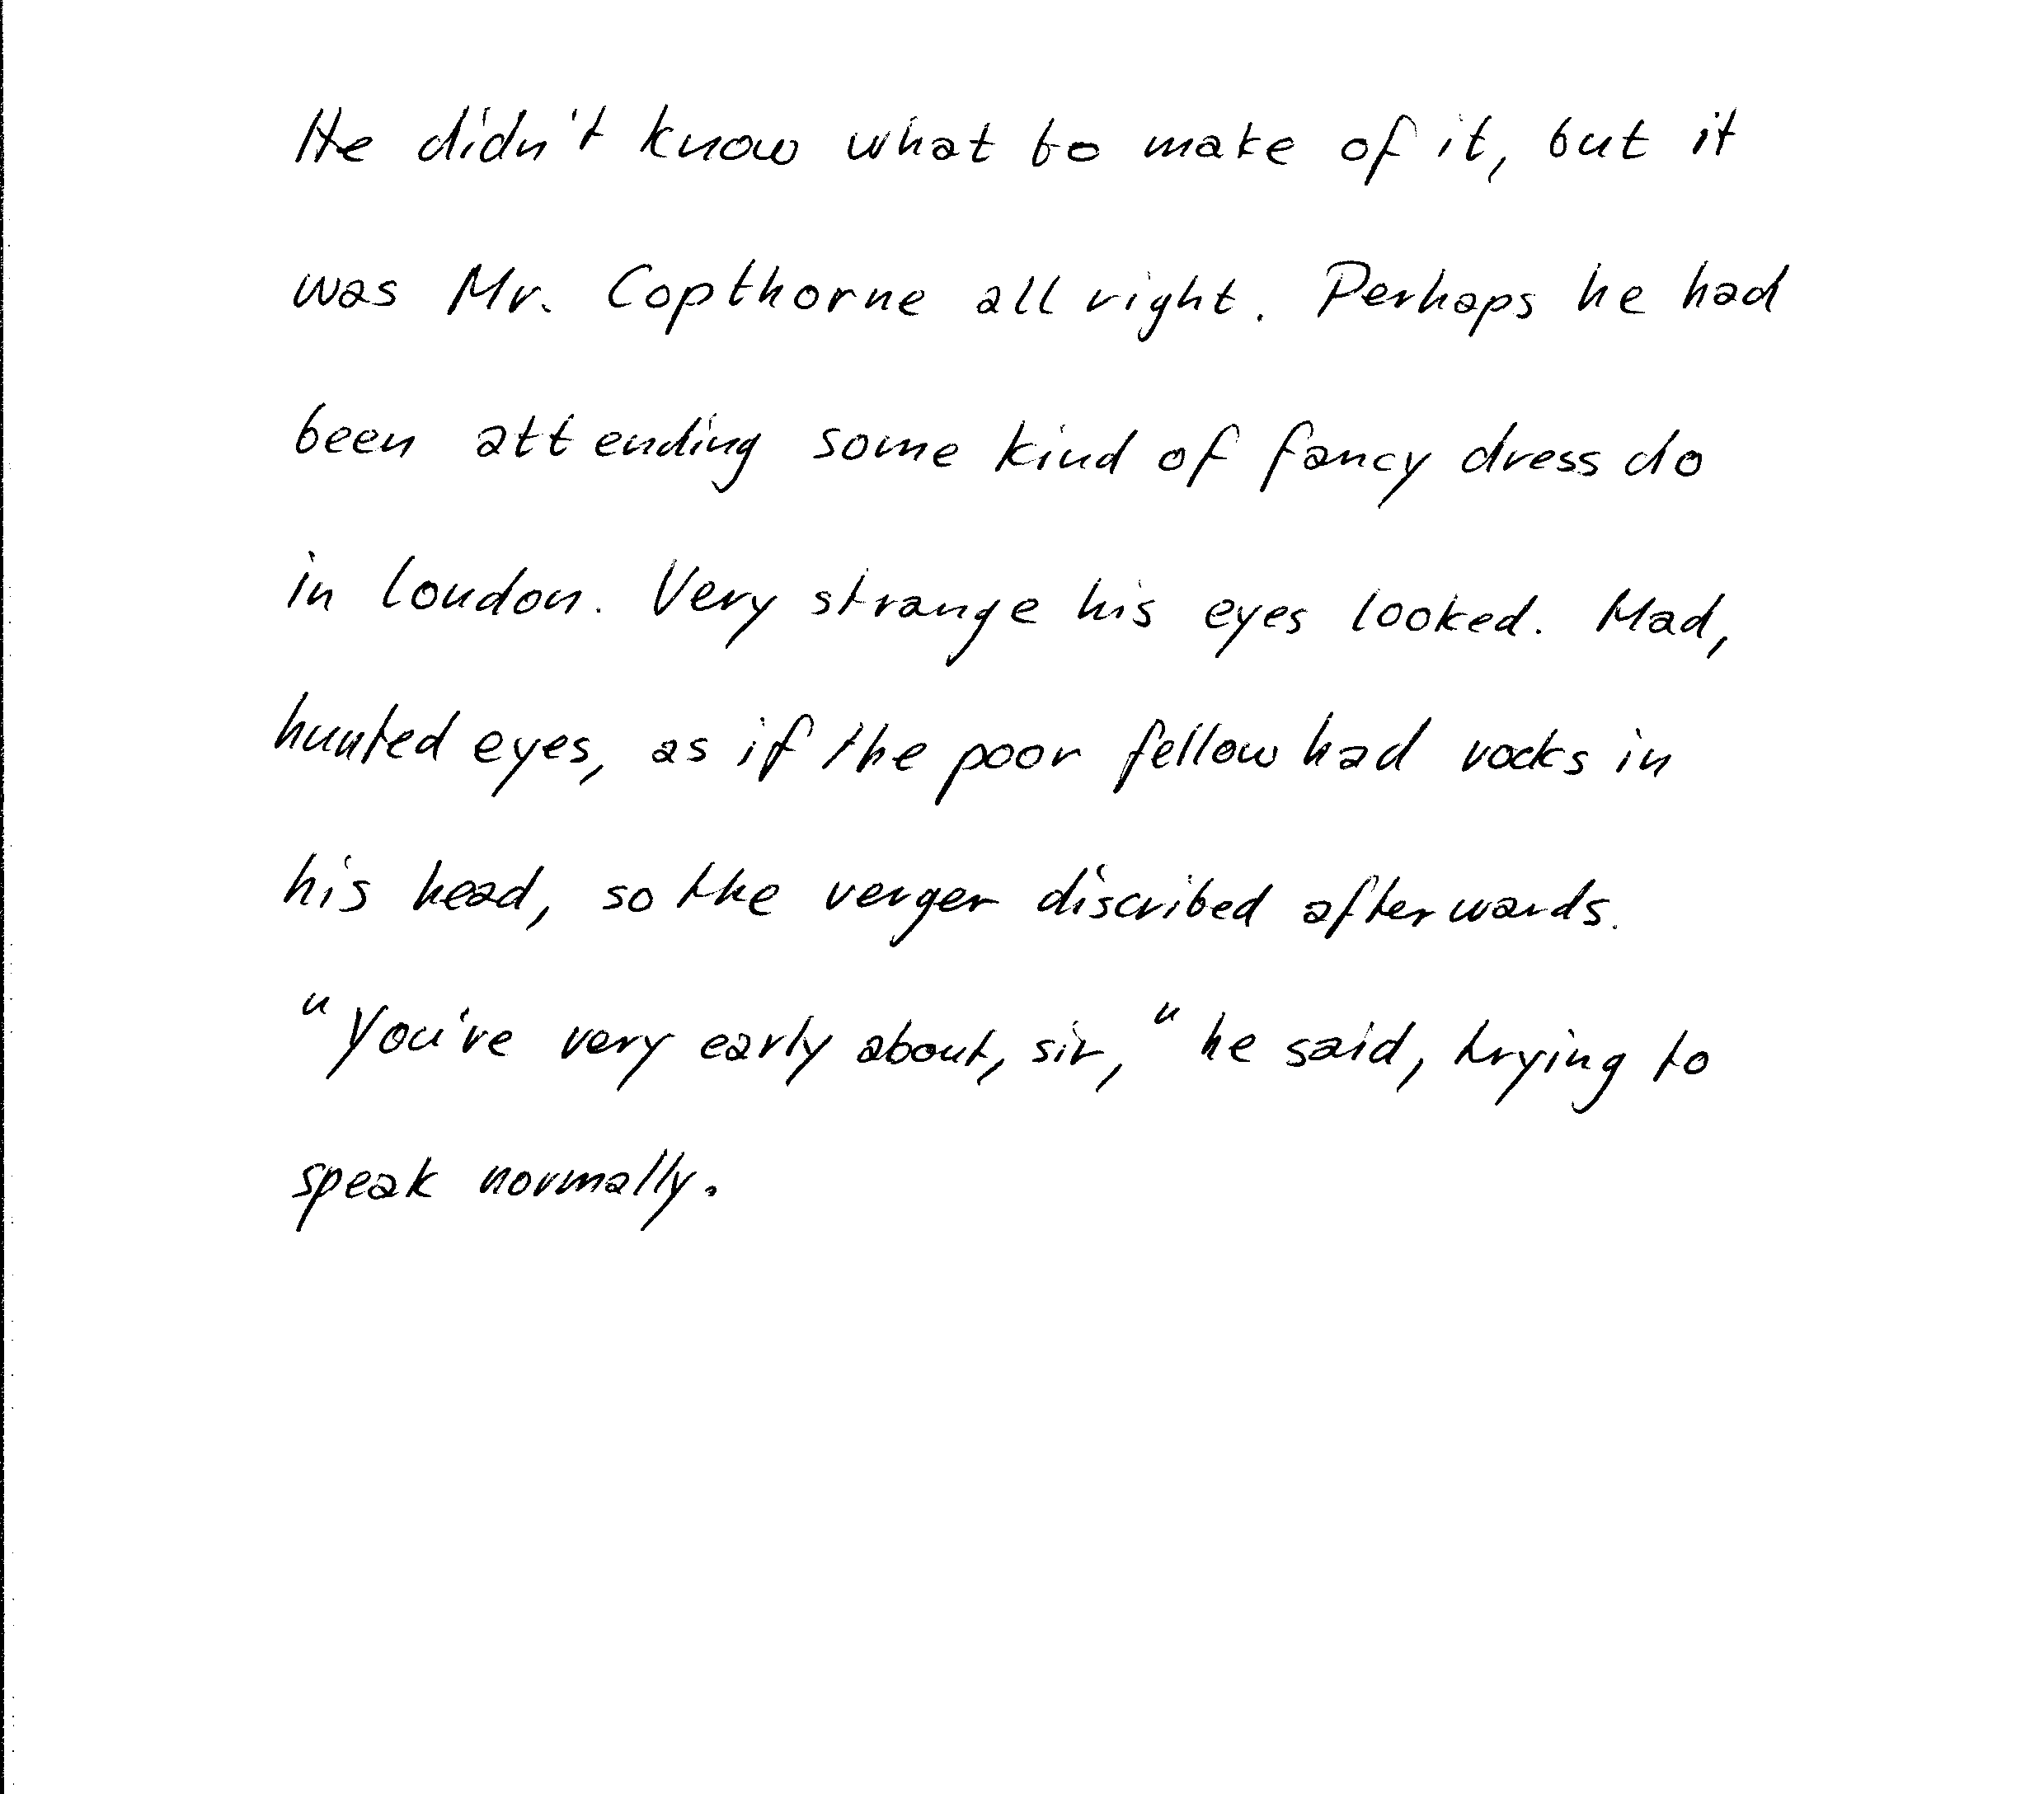 He didn't know what to make of it, but it
was Mr. Copthorne all right. Perhaps he had
been attending some kind of fancy dress do
in London. Very strange his eyes looked. Mad,
hunted eyes, as if the poor fellow had rocks in
his head, so the verger discribed afterwards.
"You've very early about, sir," he said, trying to
speak normally.